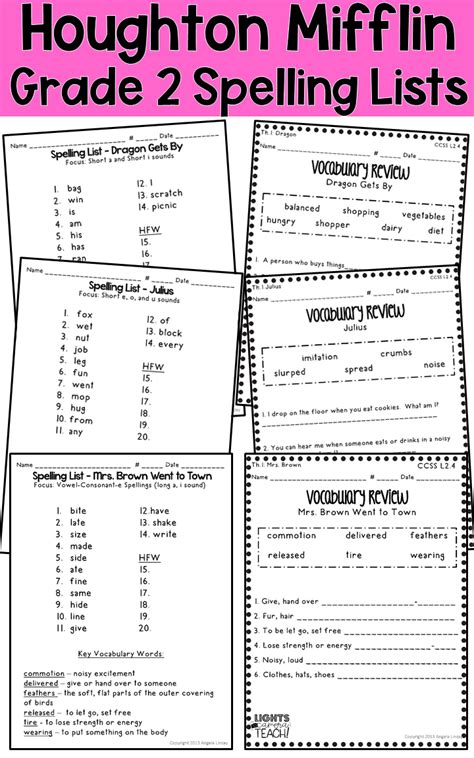 Houghton Mifflin
Grade 2 Spelling Lists
Name # Date
Spelling List - Dragon Gets By
Focus: Short a and Short i sounds
1. bag
2. win
3. is
4. am
5. his
6. has
7. ran
12. I
13. scratch
14. picnic
HFW
15.
16.
17.
18.
Th.1: Dragon
CCSS L2.4
Name Date
Vocabulary Review
Dragon Gets By
balanced shopping vegetables
hungry shopper dairy diet
1. A person who buys things
Name # Date
Spelling List - Julius
Focus: Short e, o, and u sounds
1. fox
2. wet
3. nut
4. job
5. leg
6. fun
7. went
8. mop
9. hug
10. from
11. any
12. of
13. block
14. every
HFW
15.
16.
17.
18.
19.
20.
Th.1: Julius
CCSS L2.4
Name Date
Vocabulary Review
Julius
imitation crumbs
slurped spread noise
1. I drop on the floor when you eat cookies. What am I?
2. You can hear me when someone eats or drinks in a noisy
Name # Date
Spelling List - Mrs. Brown Went to Town
Focus: Vowel-Consonant-e Spellings (long a, i sound)
1. bite
2. late
3. size
4. made
5. side
6. ate
7. fine
8. same
9. hide
10. line
11. give
12. have
13. shake
14. write
HFW
15.
16.
17.
18.
19.
20.
Key Vocabulary Words:
commotion – noisy excitement
delivered – give or hand over to someone
feathers – the soft, flat parts of the outer covering
of birds
released – to let go, set free
tire - to lose strength or energy
wearing – to put something on the body
Copyright 2013 Angela
Th.1: Mrs. Brown
CCSS L2.4
Name Date
Vocabulary Review
Mrs. Brown Went to Town
commotion delivered feathers
released tire wearing
1. Give, hand over
2. Fur, hair
3. To be let go, set free
4. Lose strength or energy
5. Noisy, loud
6. Clothes, hats, shoes
LIGHTS
camera
TEACH!
Copyright 2013 Angela